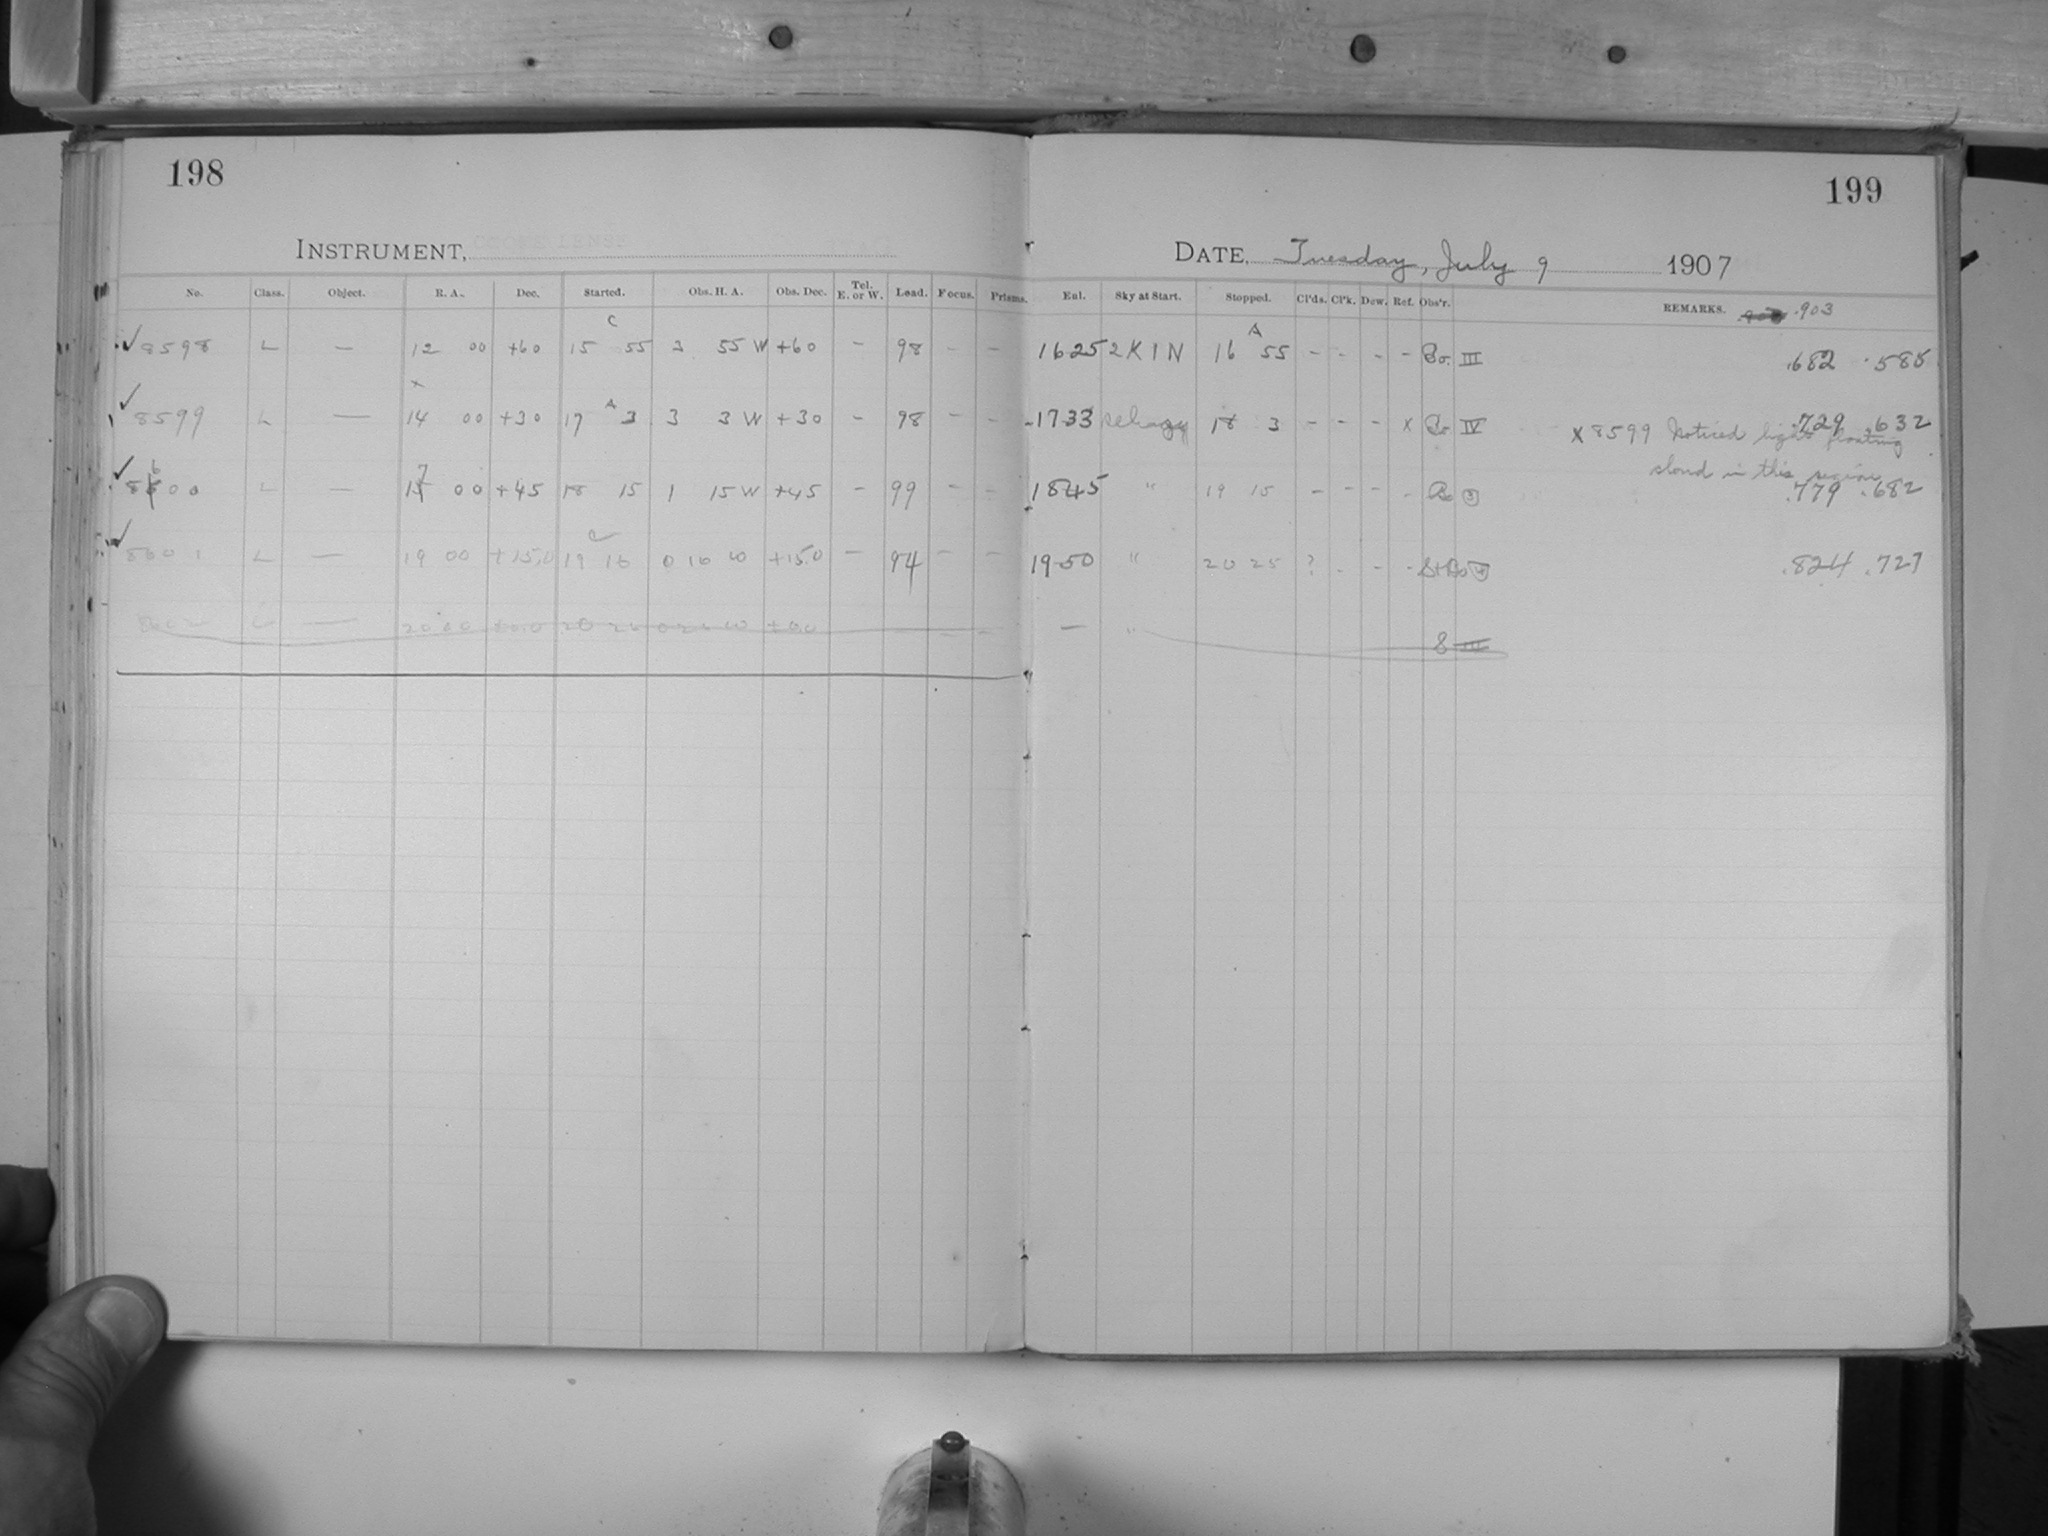 198
199
INSTRUMENT, COOKE LENSE
DATE, Tuesday, July 9 1907
No. Class. Object. R. A. Dec. Started. Obs. H. A. Obs. Dec. Tel. E. or W. Load. Focus. Prisms. Eul. Sky at Start. Stopped. Cl'ds. Cl'k. Dew. Ref. Obs'r. REMARKS. .903
C A
✓ 8598 L — 12 00 +60 15 55 3 55 W +60 – 98 – – 1625 2K1N 16 55 – – – – Bo. III .682 .585
✓ 8599 L — 14 00 +30 17 3 3 3 W +30 – 98 – – 1733 18 3 – – – x Bo IV .729 .632
x 8599 Noticed light floating
cloud in this region
✓ 8600 L — 17 00 +45 18 15 1 15 W +45 – 99 – – 1845 " 19 15 – – – – Bo 3 .779 .682
✓ 8601 L — 19 00 +15.0 19 16 0 16 W +15.0 – 94 – – 1950 " 20 25 ? – – – .824 .727
— 20 00 — "
S III